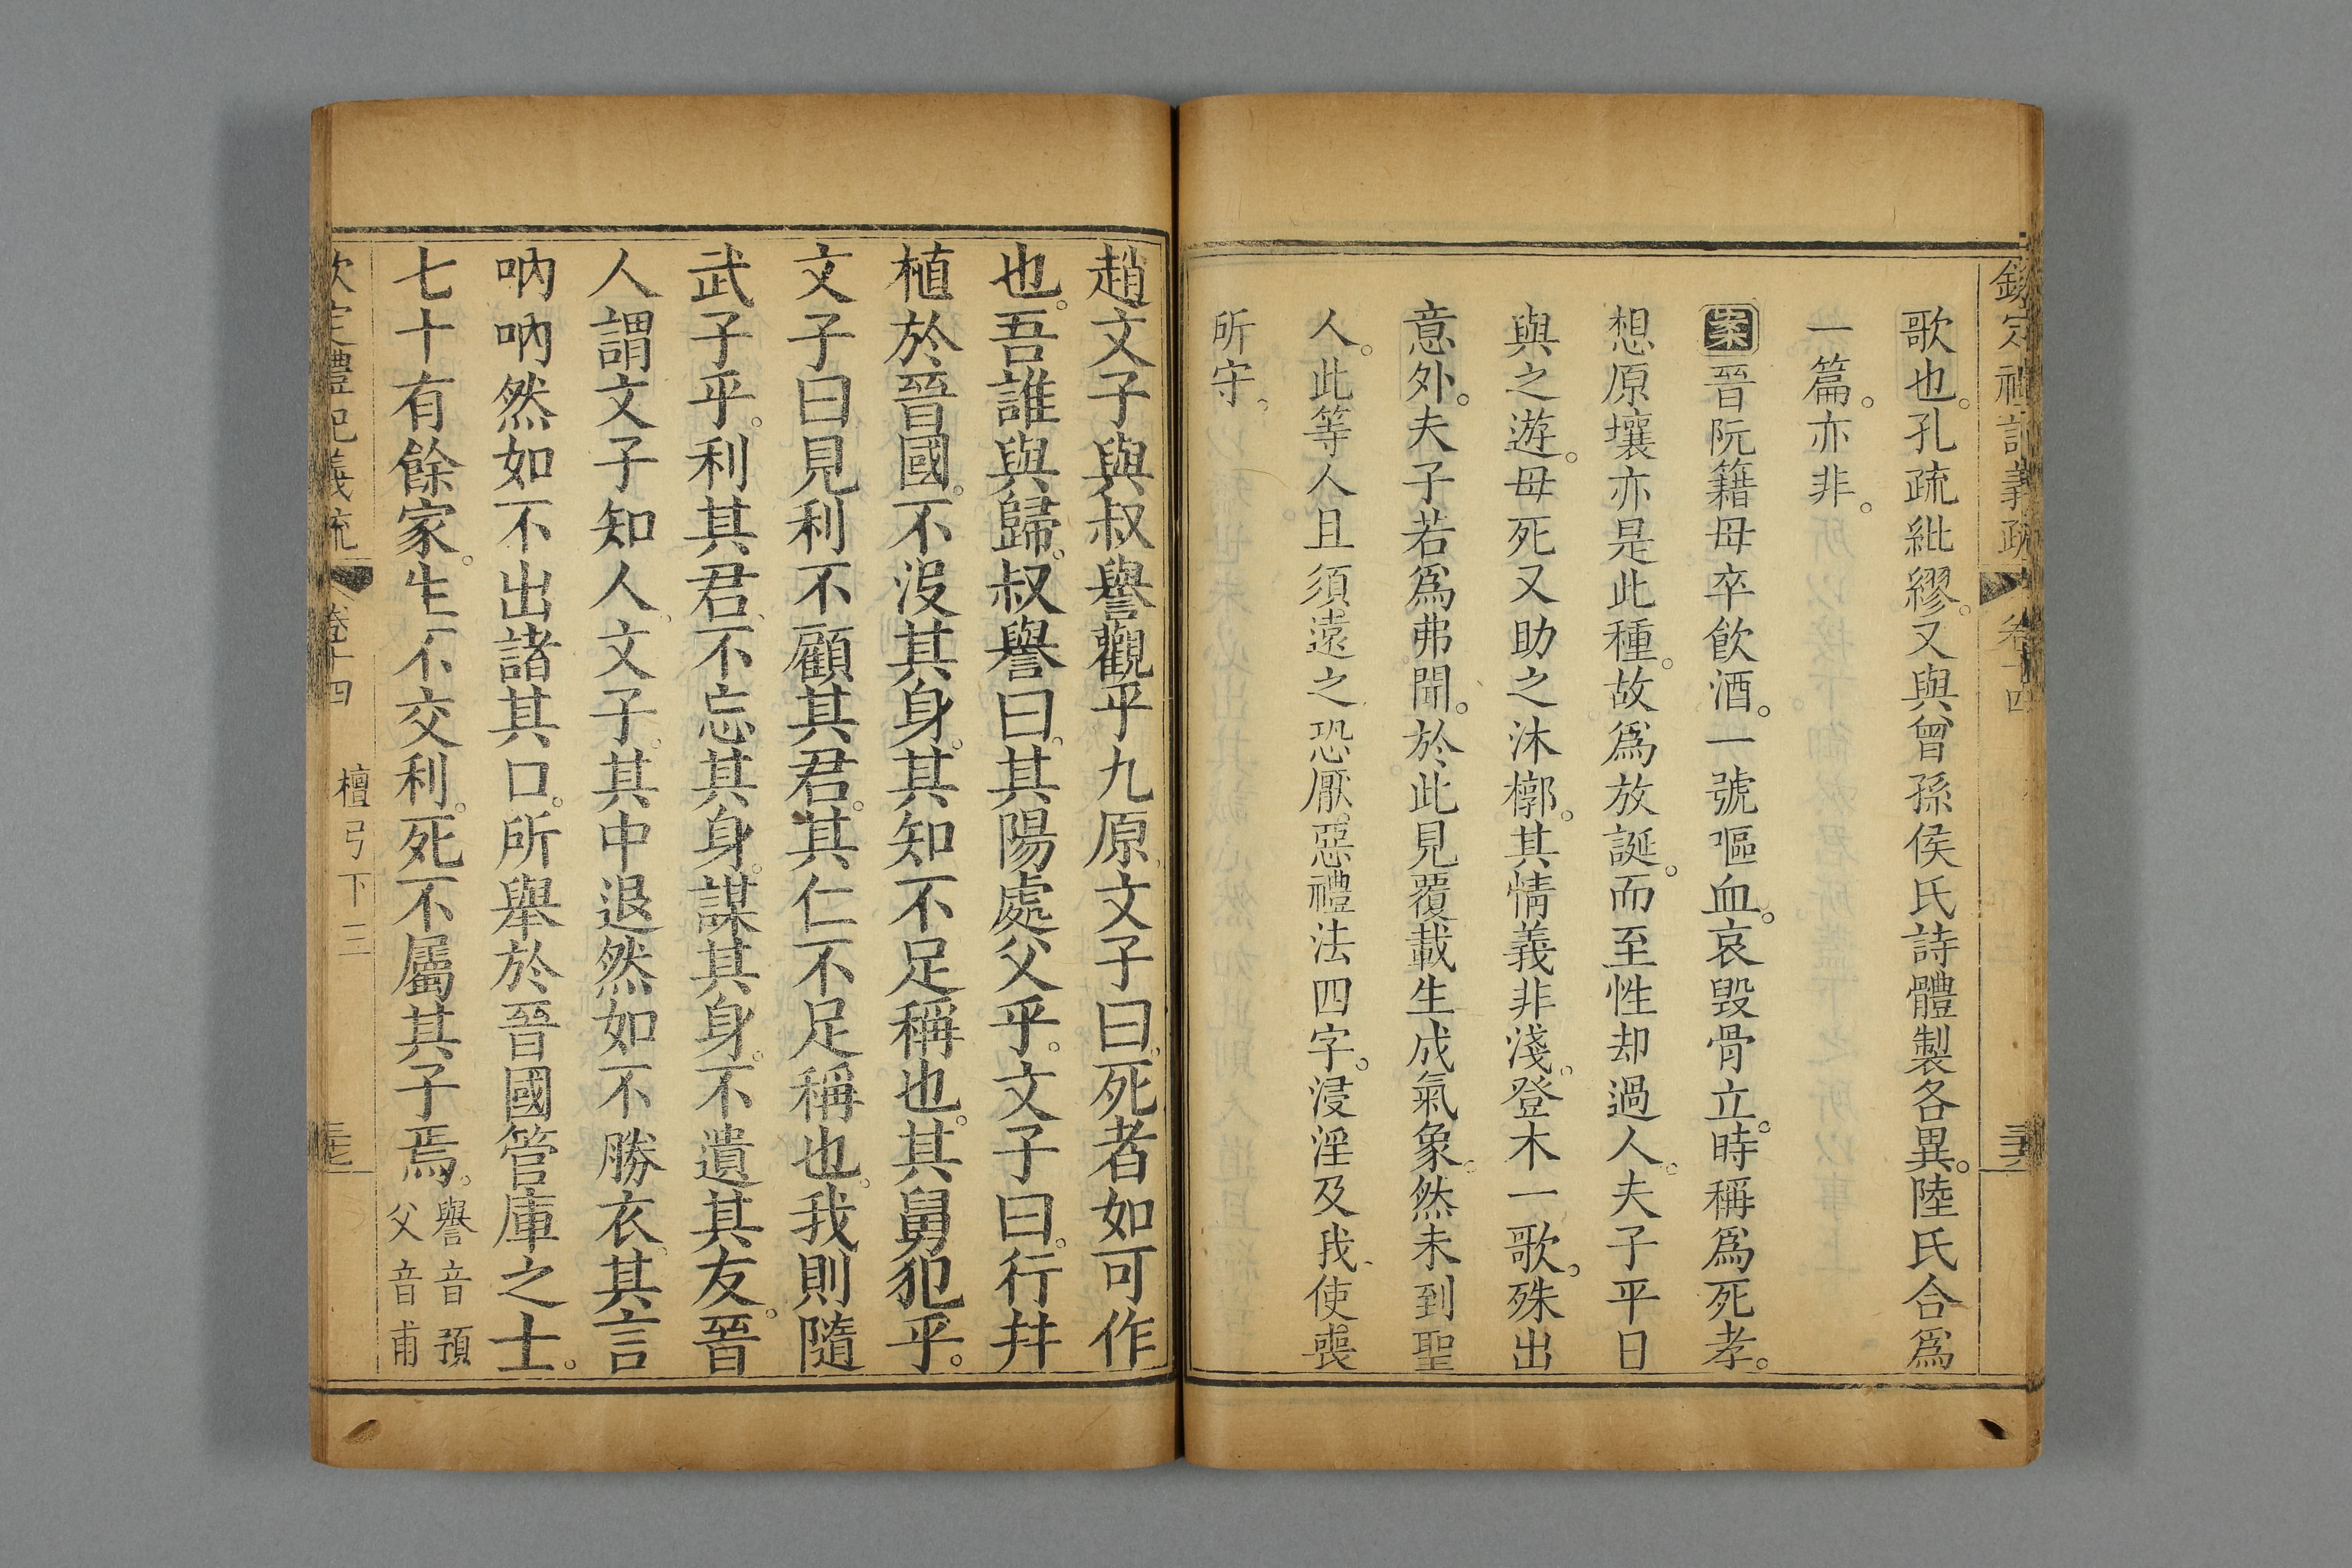 欽定禮記義疏 卷十四
歌也。孔疏紕繆。又與曾孫侯氏詩體製各異。陸氏合爲
一篇。亦非。
案晉阮籍母卒飲酒。一號嘔血。哀毀骨立。時稱爲死孝。
想原壤亦是此種。故爲放誕。而至性却過人。夫子平日
與之遊。母死又助之沐槨。其情義非淺。登木一歌。殊出
意外。夫子若爲弗聞。於此見覆載生成氣象。然未到聖
人。此等人且須遠之。恐厭惡禮法四字。浸淫及我。使喪
所守。
趙文子與叔譽觀乎九原。文子曰。死者如可作
也。吾誰與歸。叔譽曰。其陽處父乎。文子曰。行幷
植於晉國。不沒其身。其知不足稱也。其舅犯乎。
文子曰見利不顧其君。其仁不足稱也。我則隨
武子乎。利其君。不忘其身。謀其身。不遺其友。晉
人謂文子知人。文子。其中退然如不勝衣。其言
吶吶然如不出諸其口。所舉於晉國管庫之士。
七十有餘家。生不交利。死不屬其子焉。譽音預
父音甫
欽定禮記義疏 卷十四 檀弓下三